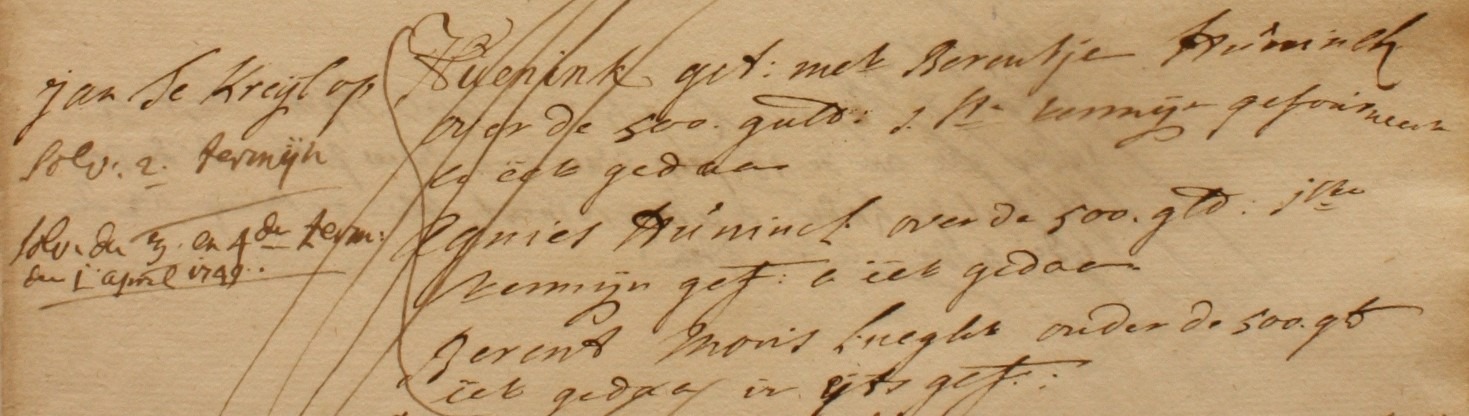 jan te Kreijl op
solv: 2. termijn
solv. du 3. en 4de term:
den 1 april 1749.
Huenink get: met Berentje Húninck
over de 500. guld: 1 ste termijn gefourneert
eedt gedaan
Agnies Húninck over de 500. gld: 1ste
termijn gef: eedt gedaan
Berent Moris knegt onder de 500. gld
eedt gedaan gef: